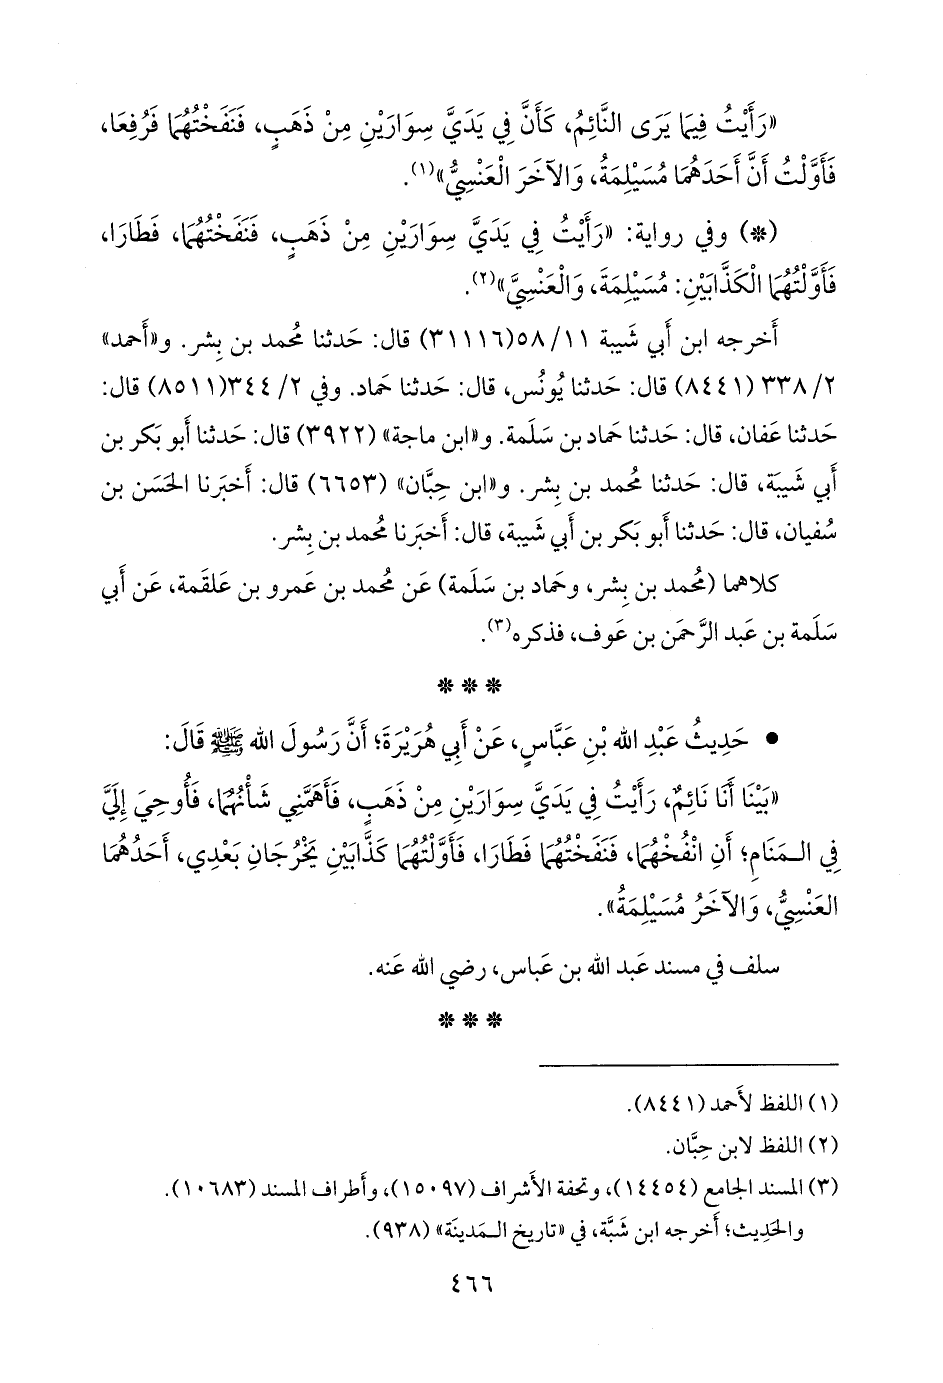 «رَأَيْتُ فِيمَا يَرَى النَّائِمُ، كَأَنَّ فِي يَدَيَّ سِوَارَيْنِ مِنْ ذَهَبٍ، فَنَفَخْتُهُمَا فَرُفِعَا،
فَأَوَّلْتُ أَنَّ أَحَدَهُمَا مُسَيْلِمَةُ، وَالآخَرَ الْعَنْسِيُّ»(١).
(*) وفي رواية: «رَأَيْتُ فِي يَدَيَّ سِوَارَيْنِ مِنْ ذَهَبٍ، فَنَفَخْتُهُمَا، فَطَارَا،
فَأَوَّلْتُهُمَا الْكَذَّابَيْنِ: مُسَيْلِمَةَ، وَالْعَنْسِيَّ»(٢).
أَخرجه ابن أَبي شَيبة ١١/ ٥٨(٣١١١٦) قال: حَدثنا مُحمد بن بِشر. و«أَحمد»
٢/ ٣٣٨ (٨٤٤١) قال: حَدثنا يُونُس، قال: حَدثنا حَماد. وفي ٢/ ٣٤٤(٨٥١١) قال:
حَدثنا عَفان، قال: حَدثنا حَماد بن سَلَمة. و«ابن ماجة» (٣٩٢٢) قال: حَدثنا أَبو بَكر بن
أَبي شَيبَة، قال: حَدثنا مُحمد بن بِشر. و«ابن حِبَّان» (٦٦٥٣) قال: أَخبَرنا الحَسَن بن
سُفيان، قال: حَدثنا أَبو بَكر بن أَبي شَيبة، قال: أَخبَرنا مُحمد بن بِشر.
كلاهما (مُحمد بن بِشر، وحَماد بن سَلَمة) عَن مُحمد بن عَمرو بن عَلقمة، عَن أَبي
سَلَمة بن عَبد الرَّحمَن بن عَوف، فذكره(٣).
* * *
● حَدِيثُ عَبْدِ الله بْنِ عَبَّاسٍ، عَنْ أَبِي هُرَيْرَةَ؛ أَنَّ رَسُولَ الله ﷺ قَالَ:
«بَيْنَا أَنَا نَائِمٌ، رَأَيْتُ فِي يَدَيَّ سِوَارَيْنِ مِنْ ذَهَبٍ، فَأَهَمَّنِي شَأْنُهُمَا، فَأُوحِيَ إِلَيَّ
فِي الـمَنَامِ؛ أَنِ انْفُخْهُمَا، فَنَفَخْتُهُمَا فَطَارَا، فَأَوَّلْتُهُمَا كَذَّابَيْنِ يَخْرُجَانِ بَعْدِي، أَحَدُهُمَا
العَنْسِيُّ، وَالآخَرُ مُسَيْلِمَةُ».
سلف في مسند عَبد الله بن عَباس، رضي الله عَنه.
* * *
(١) اللفظ لأَحمد (٨٤٤١).
(٢) اللفظ لابن حِبَّان.
(٣) المسند الجامع (١٤٤٥٤)، وتحفة الأَشراف (١٥٠٩٧)، وأَطراف المسند (١٠٦٨٣).
والحَدِيث؛ أَخرجه ابن شَبَّة، في «تاريخ الـمَدينَة» (٩٣٨).
٤٦٦